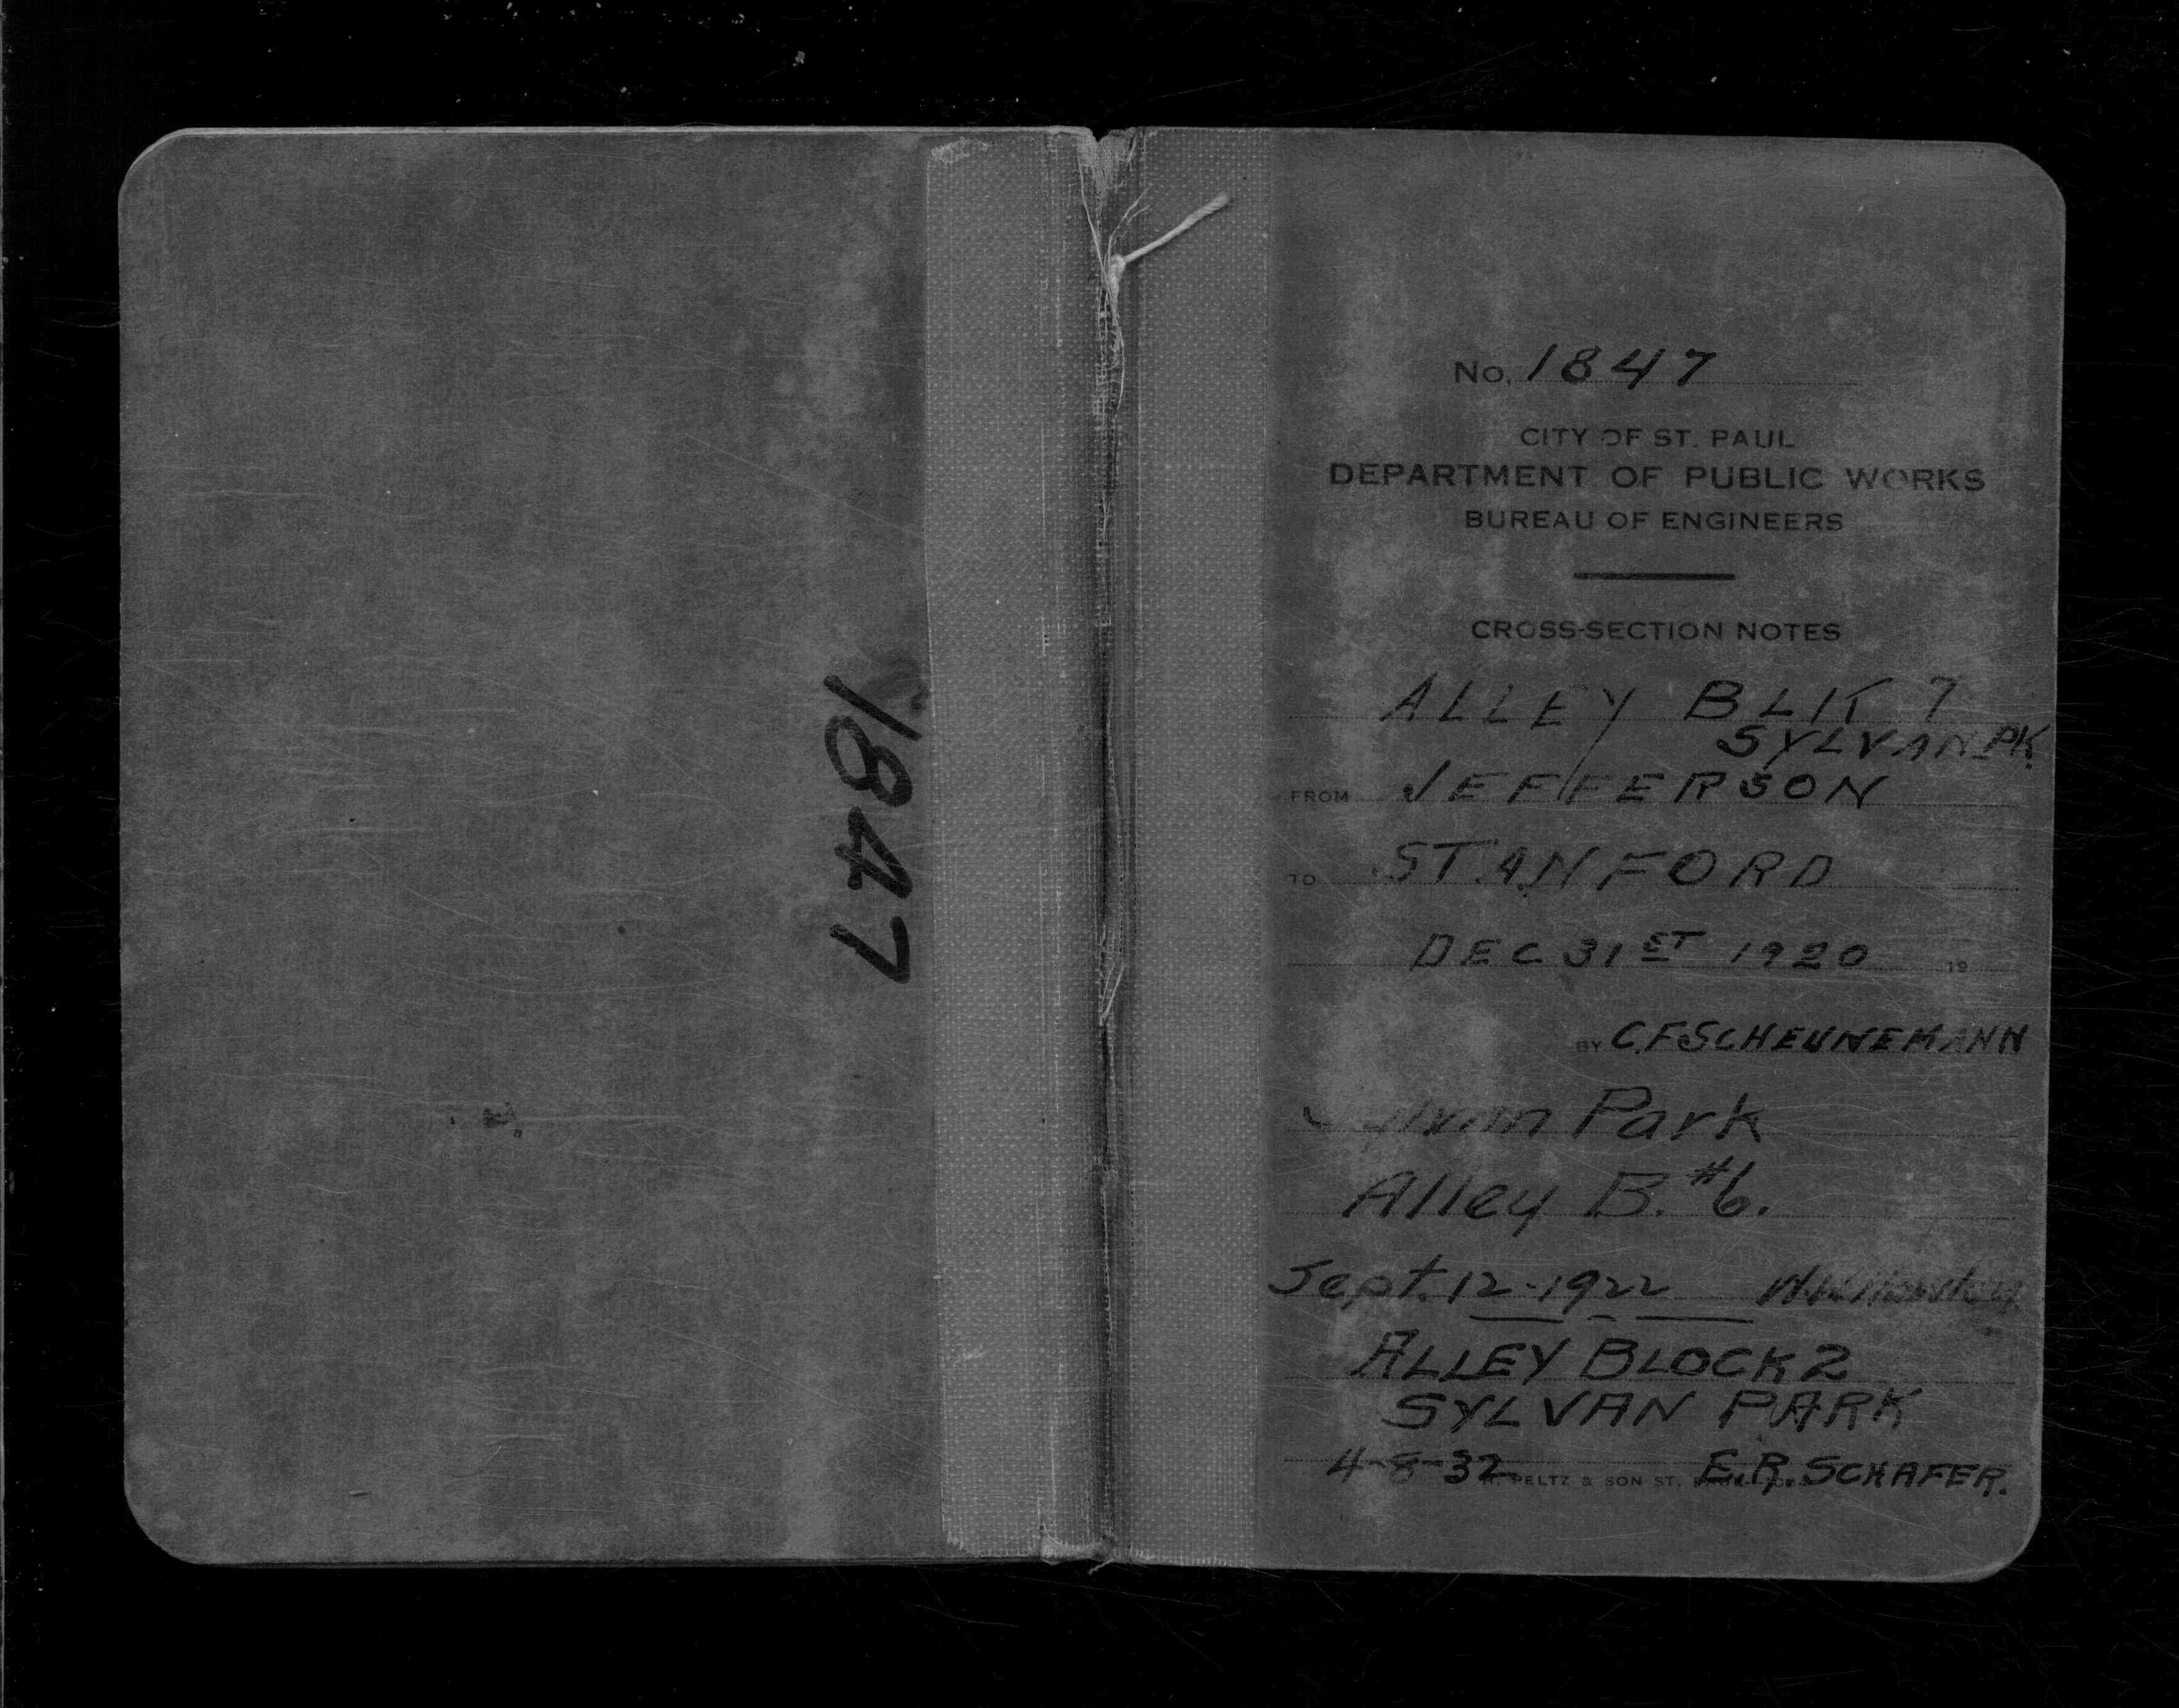 1847
No. 1847
CITY OF ST. PAUL
DEPARTMENT OF PUBLIC WORKS
BUREAU OF ENGINEERS
CROSS-SECTION NOTES
ALLEY BLK 7
SYLVAN PK.
FROM JEFFERSON
TO STANFORD
DEC 31ST 1920 19
BY C.F. SCHEUNEMANN
Sylvan Park
Alley B. #6.
Sept. 12-1922
ALLEY BLOCK 2
SYLVAN PARK
4-8-32 E.R. SCHAFER.
PELTZ & SON ST.